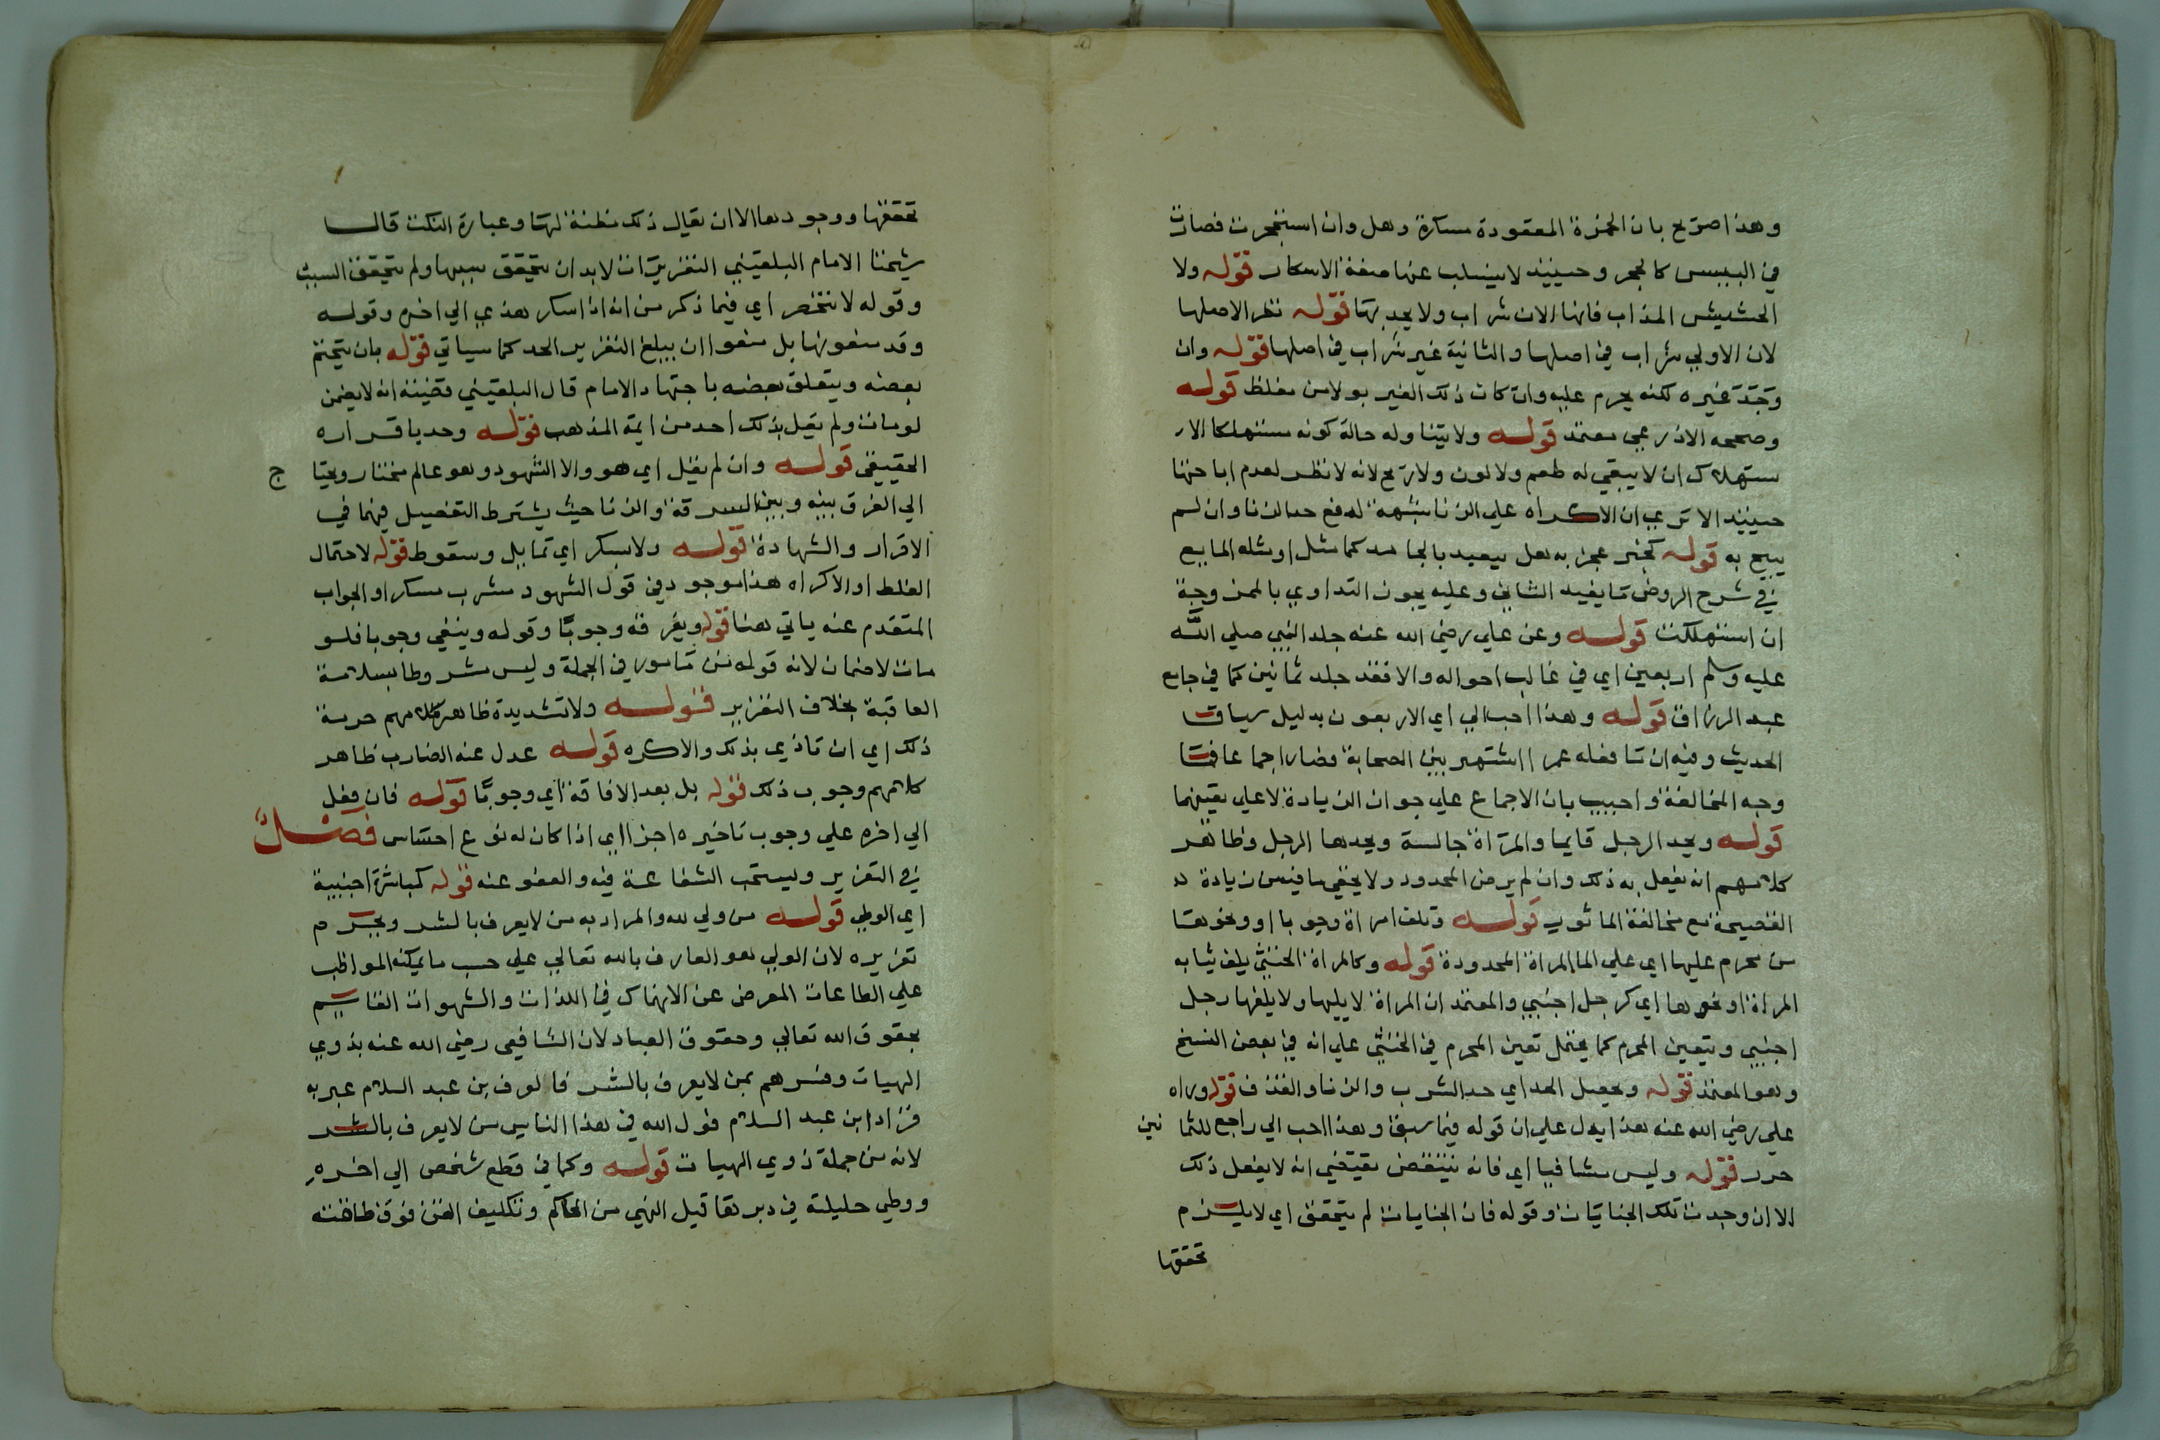 وهذا صريح بان الخمرة المعقودة مسكرة وهل وان استحجرت فصارت
في اليبس كالحجر وحينيذ لا ينسلب عنها صفة الاسكار قوله ولا
الحشيش المذاب فانها الان شراب ولا يحد بها قوله نظر الاصلها
لان الاولي شراب في اصلها والثانية غير شراب في اصلها قوله وان
وجد غيره لكنه يحرم عليه وان كان ذلك الغير بولا من مغلظ قوله
وصححه الاذرعي معتمد قوله ولا يتناوله حالة كونه مستهلكا الا
ستهلاك ان لا يبقي له طعم ولا لون ولا ريح لانه لا نظر لعدم اباحتها
حينيذ الا تري ان الاكراه علي الزنا شبهة لدفع حد الزنا وان لم
يبح به قوله كخبز عجن به هل يتقيد بالجامد كما مثل او مثله المايع
في شرح الروض ما يفيد الثاني وعليه يجوز التداوي بالممزوجة
ان استهلكت قوله وعن علي رضي الله عنه جلد النبي صلي الله
عليه وسلم اربعين اي في غالب احواله والا فقد جلد ثمانين كما في جامع
عبد الرزاق قوله وهذا احب الي اي الاربعون بدليل سياق
الحديث وفيه ان ما فعله عمر اشتهر بين الصحابة فصار اجماعا فما
وجه المخالفة واجيب بان الاجماع علي جواز الزيادة لا علي تعينها
قوله ويحد الرجل قايما والمراة جالسة ويحدها الرجل وظاهر
كلامهم انه يفعل به ذلك وان لم يرض المحدود ولا يخفي ما فيه من زيادة
الفضيحة مع مخالفة الماثور قوله وتلف امراة وجوبا او ونحوها
من محرم عليها اي علي المراة المحدودة قوله وكالمراة الخنثي يلف ثيابه
المراة او نحوها اي كرجل اجنبي والمعتمد ان المراة لا يليها ولا يلفها رجل
اجنبي ويتعين المحرم كما يحتمل تعين المحرم في الخنثي علي انه في بعض النسخ
وهو المعتمد قوله ويحصل الحد اي حد الشرب والزنا والقذف قوله وراه
علي رضي الله عنه هذا يدل علي ان قوله فيما سبق وهذا احب الي راجع للثما نين
حرر قوله وليس شافيا اي فانه ينتقض يقتضي انه لا يفعل ذلك
الا ان وجدت تلك الجنايات وقوله فان الجنايات لم يتحقق اي لا يلزم
تحققها
تحققها ووجودها الا ان يقال ذلك مظنة لها وعبارة النكت قال
شيخنا الامام البلقيني التعزيرات لا بد ان يتحقق سببها ولم يتحقق السبب
وقوله لا تنحصر اي فيما ذكر من انه اذا سكر هذي الي اخره وقوله
وقد منعوها بل منعوا ان يبلغ التعزير الحد كما سياتي قوله بان يتحتم
بعضه ويتعلق بعضه باجتهاد الامام قال البلقيني قضيته انه لا يضمن
لو مات ولم يقل بذلك احد من ايمة المذهب قوله وحد باقراره
الحقيقي قوله وان لم يقل اي هو والا الشهود وهو عالم مختار ويحتا ج
الي الفرق بينه وبين السرقة والزنا حيث يشترط التفصيل فيهما في
الاقرار والشهادة قوله ولا بسكر اي تمايل وسقوط قوله لاحتمال
الغلط او الاكراه هذا موجود في قول الشهود شرب مسكرا والجواب
المتقدم عنه ياتي هنا قوله ويفرقه وجوبا وقوله وينقي وجوبا فلو
مات لا ضمان لانه قوله من مامور في الجملة وليس مشروطا بسلامة
العاقبة بخلاف التعزير قوله ولا تشد يده ظاهر كلامهم حرمة
ذلك اي ان تاذي بذلك والا كره قوله عدل عنه الضارب ظاهر
كلامهم وجوب ذلك قوله بل بعد الافاقة اي وجوبا قوله فان فعل
الي اخره علي وجوب تاخيره اجزا اي اذا كان له نوع احساس فصل
في التعزير ويستحب الشفاعة فيه والعفو عنه قوله كمباشرة اجنبية
اي الوطي قوله من ولي لله والمراد به من لا يعرف بالشر ويحرم
تعزيره لان الولي هو العارف بالله تعالي علي حسب ما يمكنه المواظب
علي الطاعات المعرض عن الانهماك في اللذات والشهوات القايم
بحقوق الله تعالي وحقوق العباد لان الشافعي رضي الله عنه بذوي
الهيات وفسرهم بمن لا يعرف بالشر قالوا وابن عبد السلام عبر به
فزاد ابن عبد السلام قول الله في هذا الناس من لا يعرف بالشر
لانه من جملة ذوي الهيات قوله وكما في قطع شخص الي اخره
ووطي حليلته في دبرها قبل النهي من الحاكم وتكليف القن فوق طاقته